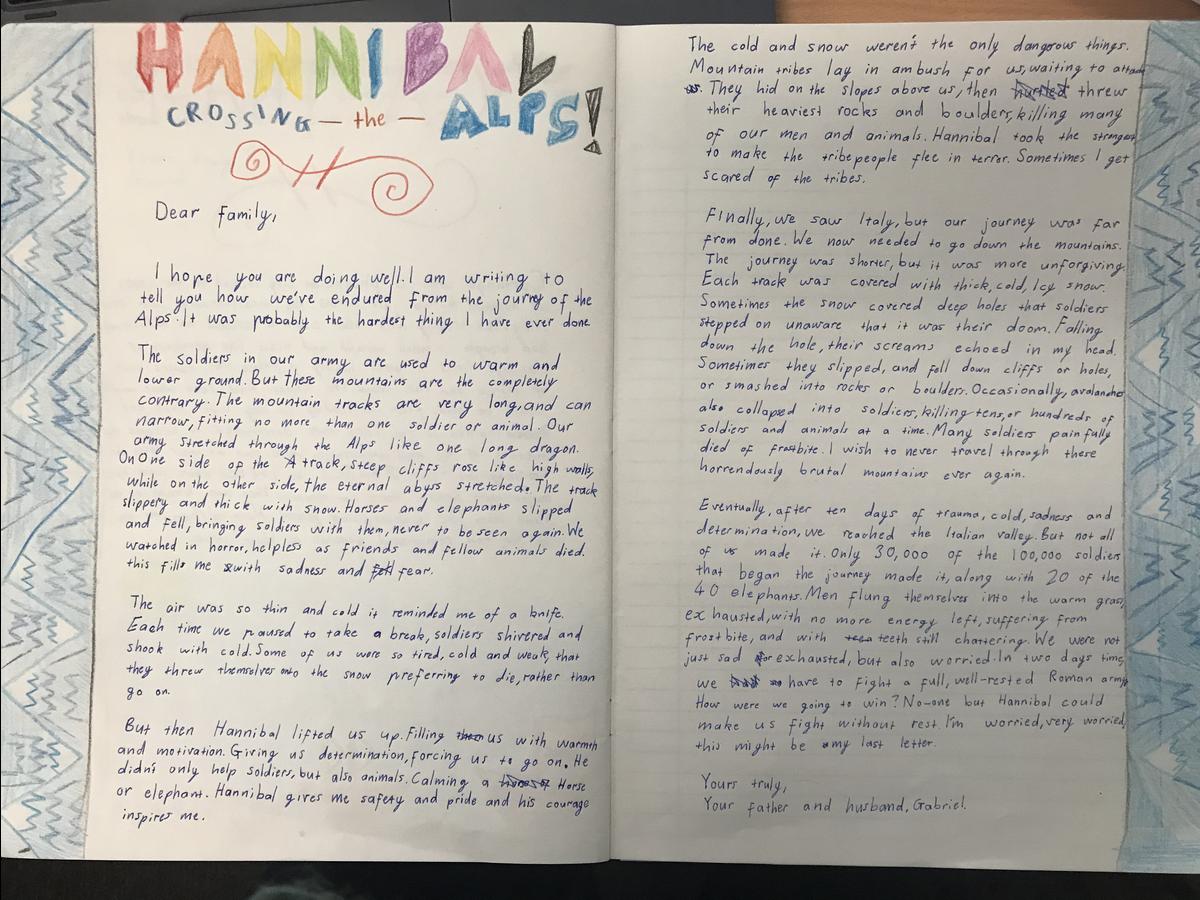 HANNIBAL
CROSSING — the — ALPS!
Dear family,
I hope you are doing well. I am writing to
tell you how we've endured from the journey of the
Alps. It was probably the hardest thing I have ever done
The soldiers in our army are used to warm and
lower ground. But these mountains are the completely
contrary. The mountain tracks are very long, and can
narrow, fitting no more than one soldier or animal. Our
army stretched through the Alps like one long dragon.
On One side of the track, steep cliffs rose like high walls,
while on the other side, the eternal abyss stretched. The track
slippery and thick with snow. Horses and elephants slipped
and fell, bringing soldiers with them, never to be seen again. We
watched in horror, helpless as friends and fellow animals died.
this fills me with sadness and fear.
The air was so thin and cold it reminded me of a knife.
Each time we paused to take a break, soldiers shivered and
shook with cold. Some of us were so tired, cold and weak, that
they threw themselves onto the snow preferring to die, rather than
go on.
But then Hannibal lifted us up. Filling us with warmth
and motivation. Giving us determination, forcing us to go on. He
didn't only help soldiers, but also animals. Calming a Horse
or elephant. Hannibal gives me safety and pride and his courage
inspires me.
The cold and snow weren't the only dangerous things.
Mountain tribes lay in ambush for us, waiting to attack
us. They hid on the slopes above us, then threw
their heaviest rocks and boulders, killing many
of our men and animals. Hannibal took the strongest
to make the tribepeople flee in terror. Sometimes I get
scared of the tribes.
Finally, we saw Italy, but our journey was far
from done. We now needed to go down the mountains.
The journey was shorter, but it was more unforgiving.
Each track was covered with thick, cold, Icy snow.
Sometimes the snow covered deep holes that soldiers
stepped on unaware that it was their doom. Falling
down the hole, their screams echoed in my head.
Sometimes they slipped, and fell down cliffs or holes,
or smashed into rocks or boulders. Occasionally, avalanches
also collapsed into soldiers, killing tens, or hundreds of
soldiers and animals at a time. Many soldiers painfully
died of frostbite. I wish to never travel through these
horrendously brutal mountains ever again.
Eventually, after ten days of trauma, cold, sadness and
determination, we reached the Italian valley. But not all
of us made it. Only 30,000 of the 100,000 soldiers
that began the journey made it, along with 20 of the
40 elephants. Men flung themselves into the warm grass,
exhausted, with no more energy left, suffering from
frostbite, and with teeth still chattering. We were not
just sad or exhausted, but also worried. In two days time,
we have to fight a full, well-rested Roman army.
How were we going to win? No-one but Hannibal could
make us fight without rest. I'm worried, very worried,
this might be my last letter.
Yours truly,
Your father and husband, Gabriel.